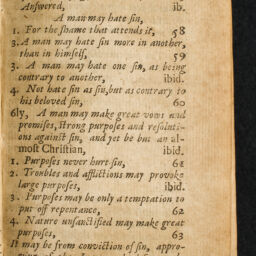 Answered, ib.
A man may hate ſin,
1. For the ſhame that attends it, 58
3. A man may hate ſin more in another,
than in himſelf, 59
3. A man may hate one ſin, as being
contrary to another, ibid.
4. Not hate ſin as ſin, but as contrary to
his beloved ſin, 60
6ly, A man may make great vows and
promiſes, ſtrong purpoſes and reſoluti-
ons againſt ſin, and yet be but an al-
moſt Chriſtian, ibid.
1. Purpoſes never hurt ſin, 61
2. Troubles and afflictions may provoke
large purpoſes, ibid.
3. Purpoſes may be only a temptation to
put off repentance, 62
4. Nature unſanctified may make great
purpoſes, 63
It may be from conviction of ſin, appro-